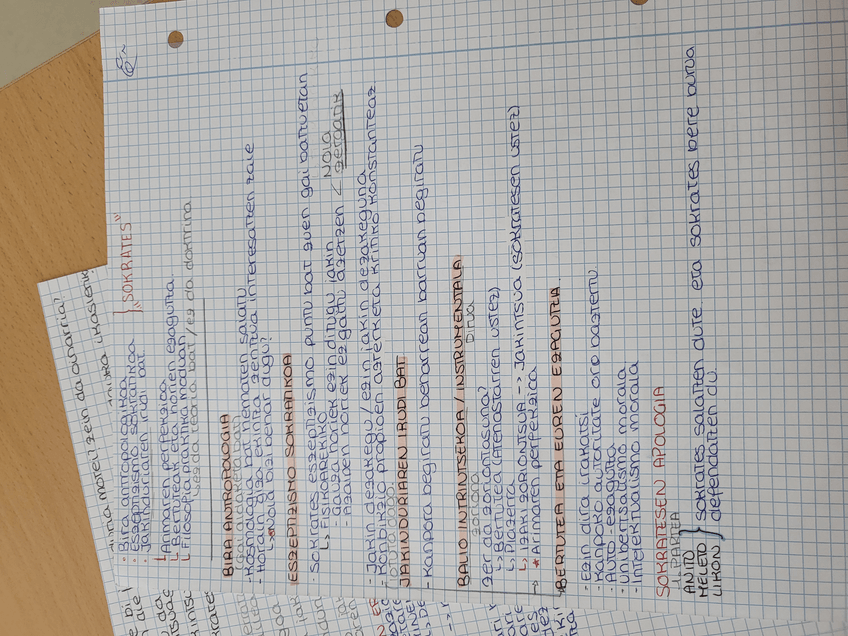 - Bira antropologikoa
- Eszeptizismo sokratikoa
- Jakinduriaren irudi bat.
} "SOKRATES"
↳ Arimaren perfekzioa
↳ Bertuteak eta horien ezagutza.
↳ Filosofia praktika moduan
↳ ez da teoria bat / ez da doktrina
BIRA ANTROPOLOGIA
- Kosmologia bat hematen saiatu
- Horain giza ekintza zentzua interesatzen zaie
↳ Nola bizi behar dugu?
ESZEPTIZISMO SOKRATIKOA
- Sokrates eszeptizismo puntu bat zuen gai batzuetan
↳ FISIKOAREKIKO
- Gauza horiek ezin ditugu jakin
- Azalpen horiek ez gaitu azaltzen < NOLA
zergatik
- Jakin dezakegu / ezin jakin dezakeguna
- Konbikzio propioen azterketa kritiko konstanteaz
JAKINDURIAREN IRUDI BAT
- Kanpora begiratu beharrean barruan begiratu
BALIO INTRINTSEKOA / INSTRUMENTALA
zoriona
Dirua
Zer da zoriontasuna?
↳ Bertutea (Atenastarren ustez)
↳ Plazerra
↳ Izaki zoriontsua --> Jakintsua (sokratesen ustez)
* Arimaren perfekzioa
BERTUTEA ETA EUREN EZAGUTZA.
- Ezin dira irakatsi
- Kanpoko autoritate oro baztertu
- Auto-ezagutza
- Unibertsalismo morala
- Intelektualismo morala
SOKRATESEN APOLOGIA
1. PARTEA
ANITO
MELETO
LIKON
} Sokrates salatzen dute eta sokrates bere burua
defendatzen du.